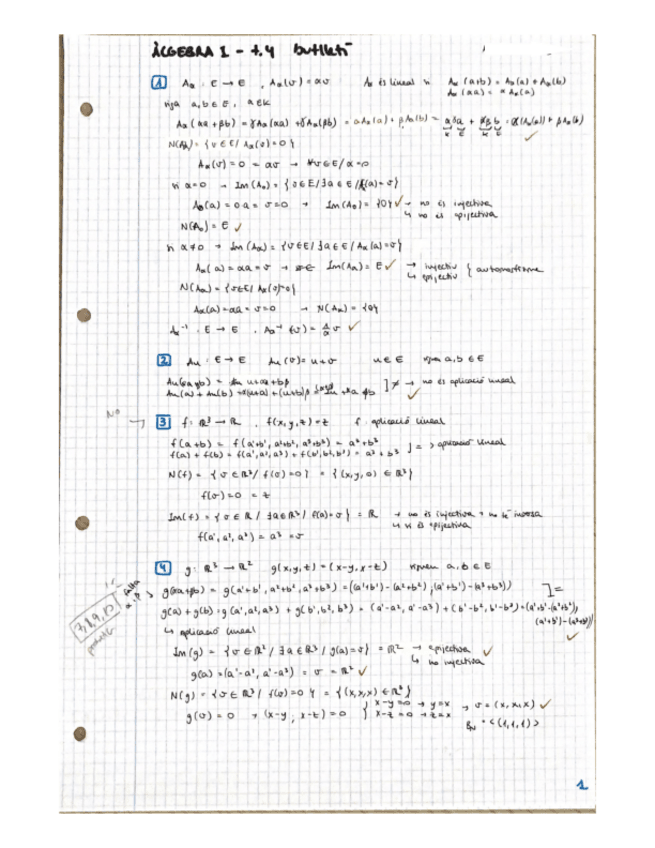 ÀLGEBRA I - t.4 butlletí
1 Aα : E → E , Aα(v) = αv Aα és lineal si Aα(a+b) = Aα(a) + Aα(b)
Aα(αa) = α Aα(a)
siga a, b ∈ E, α ∈ K
N(Aα) = { v ∈ E / Aα(v) = 0 }
Aα(v) = 0 = αv → v ∈ E / α = 0
si α = 0 → Im(A₀) = { v ∈ E / ∃ a ∈ E / f(a) = v }
A₀(a) = 0a = v = 0 → Im(A₀) = {0} ✓ → no és injectiva
↳ no és epijectiva
N(A₀) = E ✓
si α ≠ 0 → Im(Aα) = { v ∈ E / ∃ a ∈ E / Aα(a) = v }
Aα(a) = αa = v → Im(Aα) = E ✓ → injectiu
↳ epijectiu } automorfisme
N(Aα) = { v ∈ E / Aα(v) = 0 }
Aα(a) = αa = v = 0 → N(Aα) = {0}
Aα⁻¹ : E → E , Aα⁻¹(v) = 1/α v ✓
2 Au : E → E Au(v) = u + v u ∈ E siguen a, b ∈ E
] ≠ → no és aplicació lineal
✓
NO
3 f : ℝ³ → ℝ , f(x, y, z) = z f aplicació lineal
f(a+b) = f(a¹+b¹, a²+b², a³+b³) = a³+b³
f(a) + f(b) = f(a¹, a², a³) + f(b¹, b², b³) = a³ + b³ ] = → aplicació lineal
N(f) = { v ∈ ℝ³ / f(v) = 0 } = { (x, y, 0) ∈ ℝ³ }
f(v) = 0 = z
Im(f) = { v ∈ ℝ / ∃ a ∈ ℝ³ / f(a) = v } = ℝ → no és injectiva → no té inversa
↳ si és epijectiva
f(a¹, a², a³) = a³ = v
4 g : ℝ³ → ℝ² g(x, y, z) = (x-y, x-z) siguen a, b ∈ E
falta α, β
g(αa+βb) = g(a¹+b¹, a²+b², a³+b³) = ((a¹+b¹) - (a²+b²), (a¹+b¹) - (a³+b³)) ] =
g(a) + g(b) = g(a¹, a², a³) + g(b¹, b², b³) = (a¹-a², a¹-a³) + (b¹-b², b¹-b³) = (a¹+b¹-(a²+b²),
(a¹+b¹)-(a³+b³))
✓
↳ aplicació lineal
7, 8, 9, 10
Im(g) = { v ∈ ℝ² / ∃ a ∈ ℝ³ / g(a) = v } = ℝ² → epijectiva ✓
↳ no injectiva
g(a) = (a¹-a², a¹-a³) = v = ℝ² ✓
N(g) = { v ∈ ℝ³ / f(v) = 0 } = { (x, x, x) ∈ ℝ³ }
g(v) = 0 → (x-y, x-z) = 0 { x-y=0 → y=x
x-z=0 → z=x → v = (x, x, x) ✓
B_N = <(1,1,1)>
1